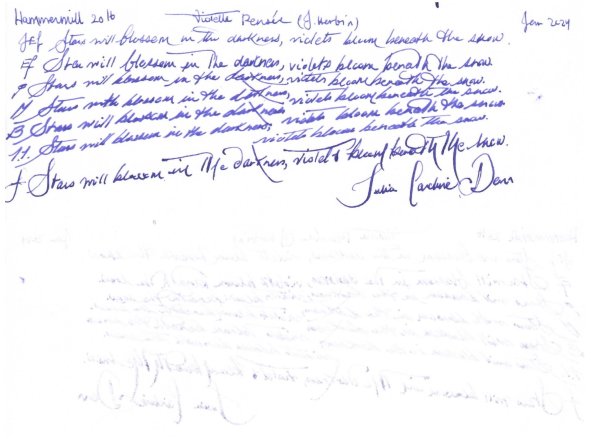 Hammermill 20lb Violette Pensée (J. Herbin) Jan 2024
Stars will blossom in the darkness, violets bloom beneath the snow.
EF Stars will blossom in the darkness, violets bloom beneath the snow
F Stars will blossom in the darkness, violets bloom beneath the snow.
M Stars will blossom in the darkness, violets bloom beneath the snow.
B Stars will blossom in the darkness violets bloom beneath the snow
1.1. Stars will blossom in the darkness, violets bloom beneath the snow.
f Stars will blossom in the darkness, violets bloom beneath the snow.
Julia Caroline Dorr